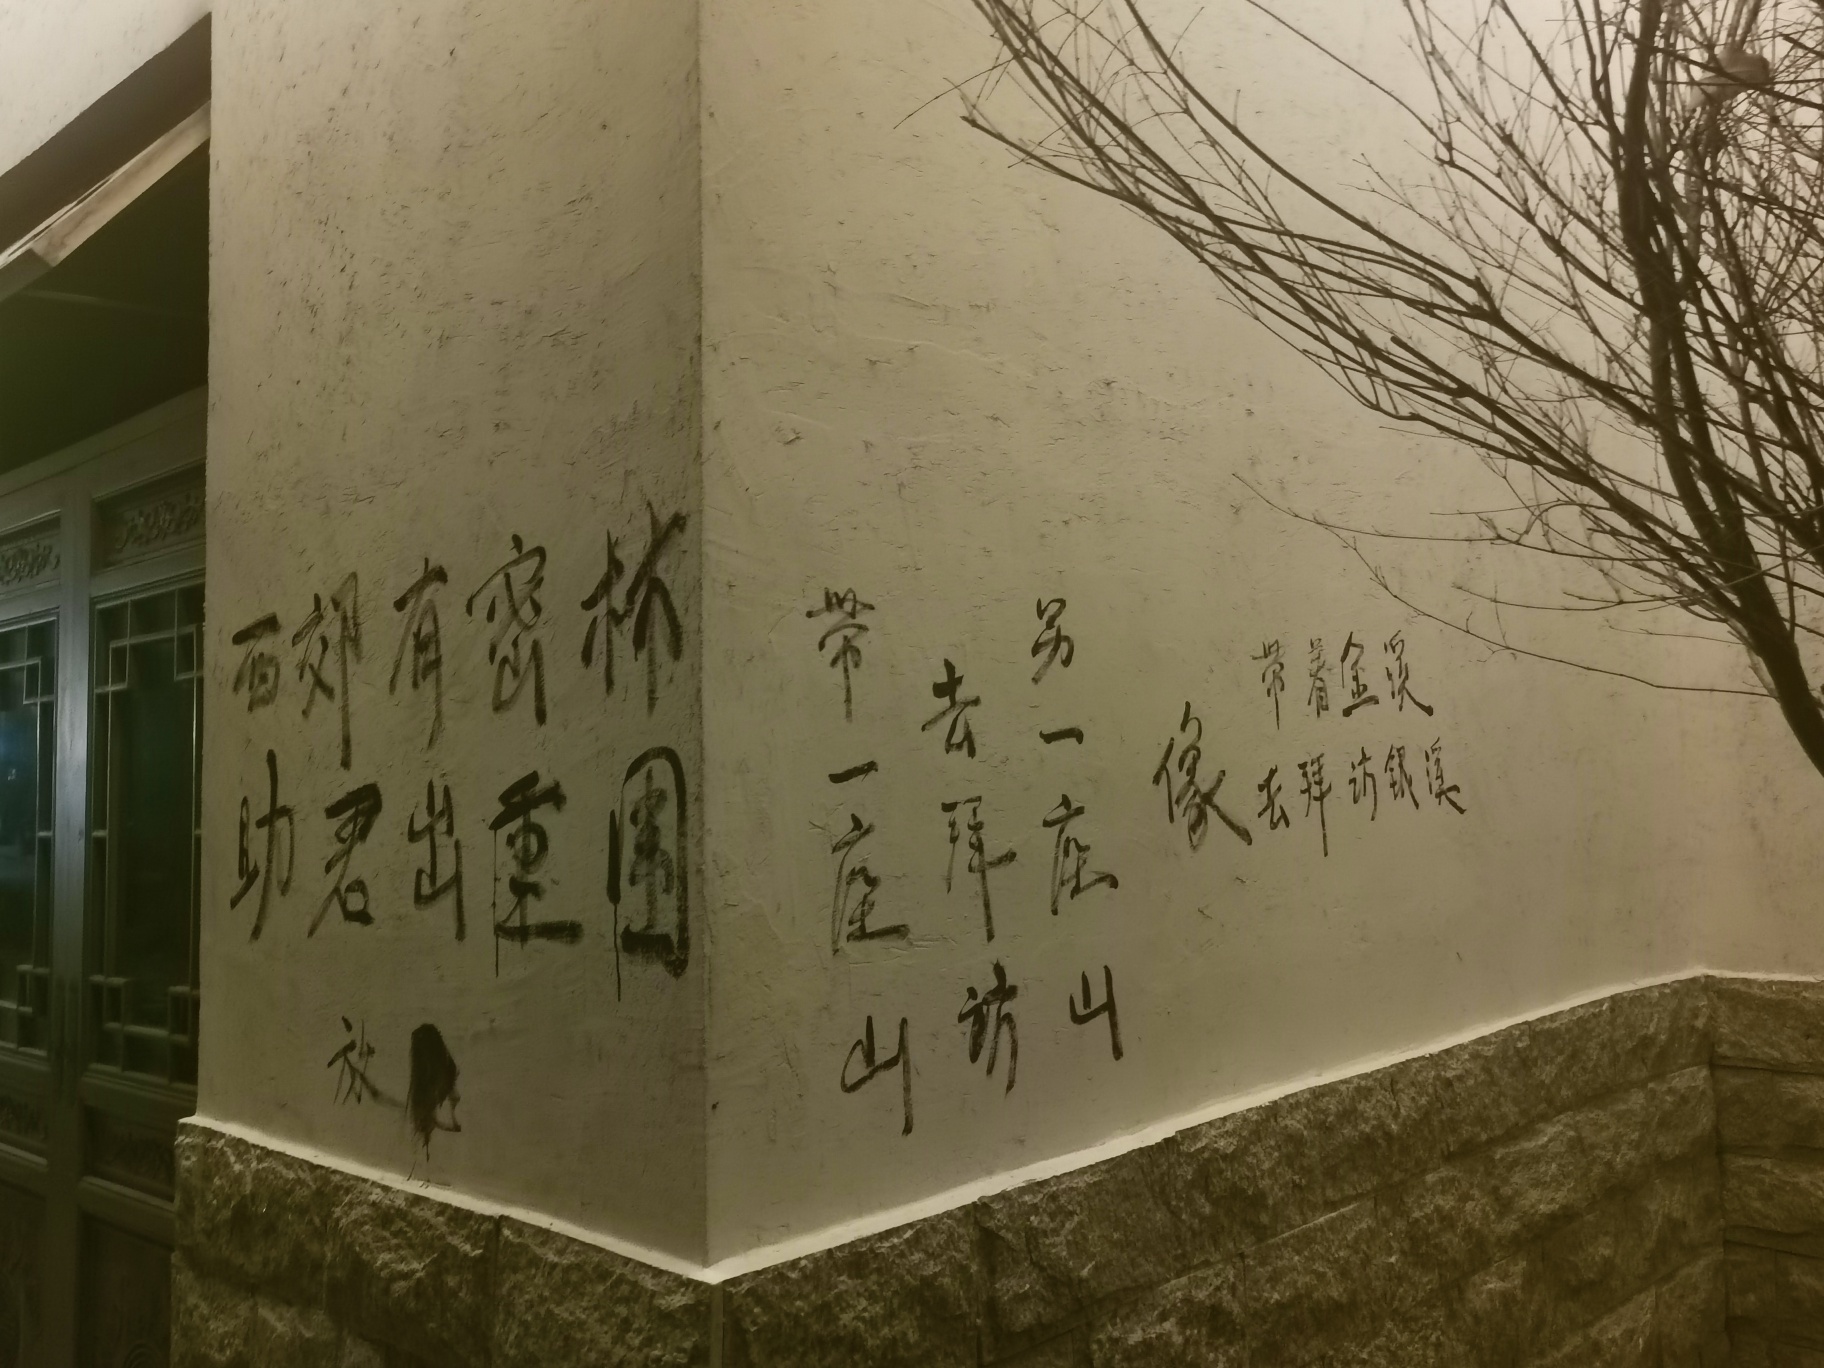 西郊有密林
助君出重围
放
带一座山
去拜访
另一座山
像
带着金溪
去拜访银溪